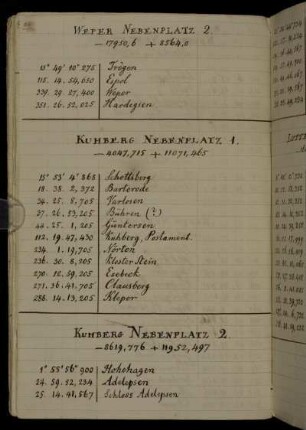 WEPER NEBENPLATZ 2.
— 17950,6 + 8564,0
11° 49' 10" 275 Trögen
115. 14. 54,650 Espol
339. 29. 27,400 Weper
351. 26. 52,025 Hardegsen
KUHBERG NEBENPLATZ 1.
— 4047,715 + 11071,465
13° 53' 4" 868 Schottsberg
18. 38. 2,372 Barterode
34. 25. 8,705 Varlosen
37. 26. 13,205 Bühren (?)
44. 25. 1,205 Güntersen
112. 19. 47,430 Kuhberg, Postament
234. 1. 19,705 Nörten
236. 30. 8,705 Kloster Stein
270. 18. 59,205 Esebeck
271. 36. 41,705 Olausberg
286. 14. 13,205 Kleper
KUHBERG NEBENPLATZ 2.
— 8619,776 + 11952,497
1° 58' 56" 900 Hohehagen
24. 59. 52,234 Adelepsen
25. 14. 41,567 Schloss Adelepsen